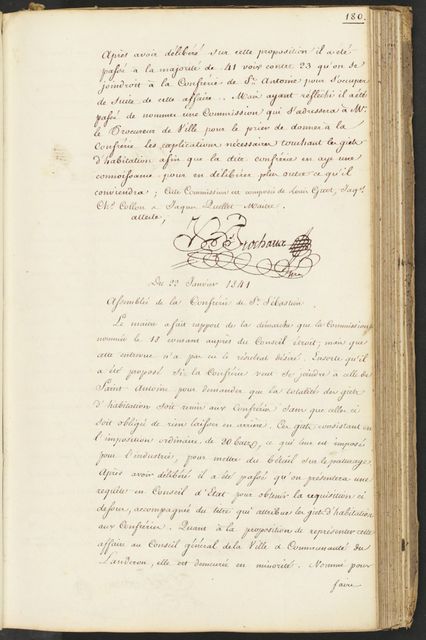 180.
Après avoir délibéré sur cette proposition il a été
passé à la majorité de 41 voix contre 23 qu'on se
joindroit à la Confrérie de St. Antoine pour s'occuper
de suite de cette affaire. Mais ayant réflechi il a été
passé de nommer une Commission qui s'adressera à Mr.
le Procureur de Ville pour le prier de donner à la
Confrérie les explications nécessaires touchant les giets
d'habitation afin que la dite confrérie en aye une
connoissance pour en délibérer plus outre ce qu'il
conviendra; Cette Commission est composée de Louis Gicot, Jaqs.
Chs. Collon & Jaques Quellet Maitre.
atteste,
Frochaux
Du 22 Janvier 1841
Assemblée de la Confrérie de St. Sébastien.
Le maitre a fait rapport de la démarche que la Commission
nommée le 18 courant auprès du Conseil étroit; mais que
cette entrevue n'a pas eu le résultat désiré. Ensorte qu'il
a été proposé si la Confrérie veut se joindre à celle de
Saint Antoine pour demander que la totalité des giets
d'habitation soit remis aux Confréries sans que celles ci
soit obligée de rien laisser en arrière. Ces giets consistant en
l'imposition ordinaire de 20 batz, ce qui leur est imposés
pour l'industrie, pour mettre du bétail sur le paturage.
Après avoir délibéré il a été passé qu'on présentera une
requête en Conseil d'Etat pour obtenir la requisition ci
dessus, accompagné du titre qui attribue les giets d'habitation
aux Confréries. Quant à la proposition de représenter cette
affaire au Conseil général de la Ville & Communauté du
Landeron, elle est demeurée en minorité. Nommé pour
faire